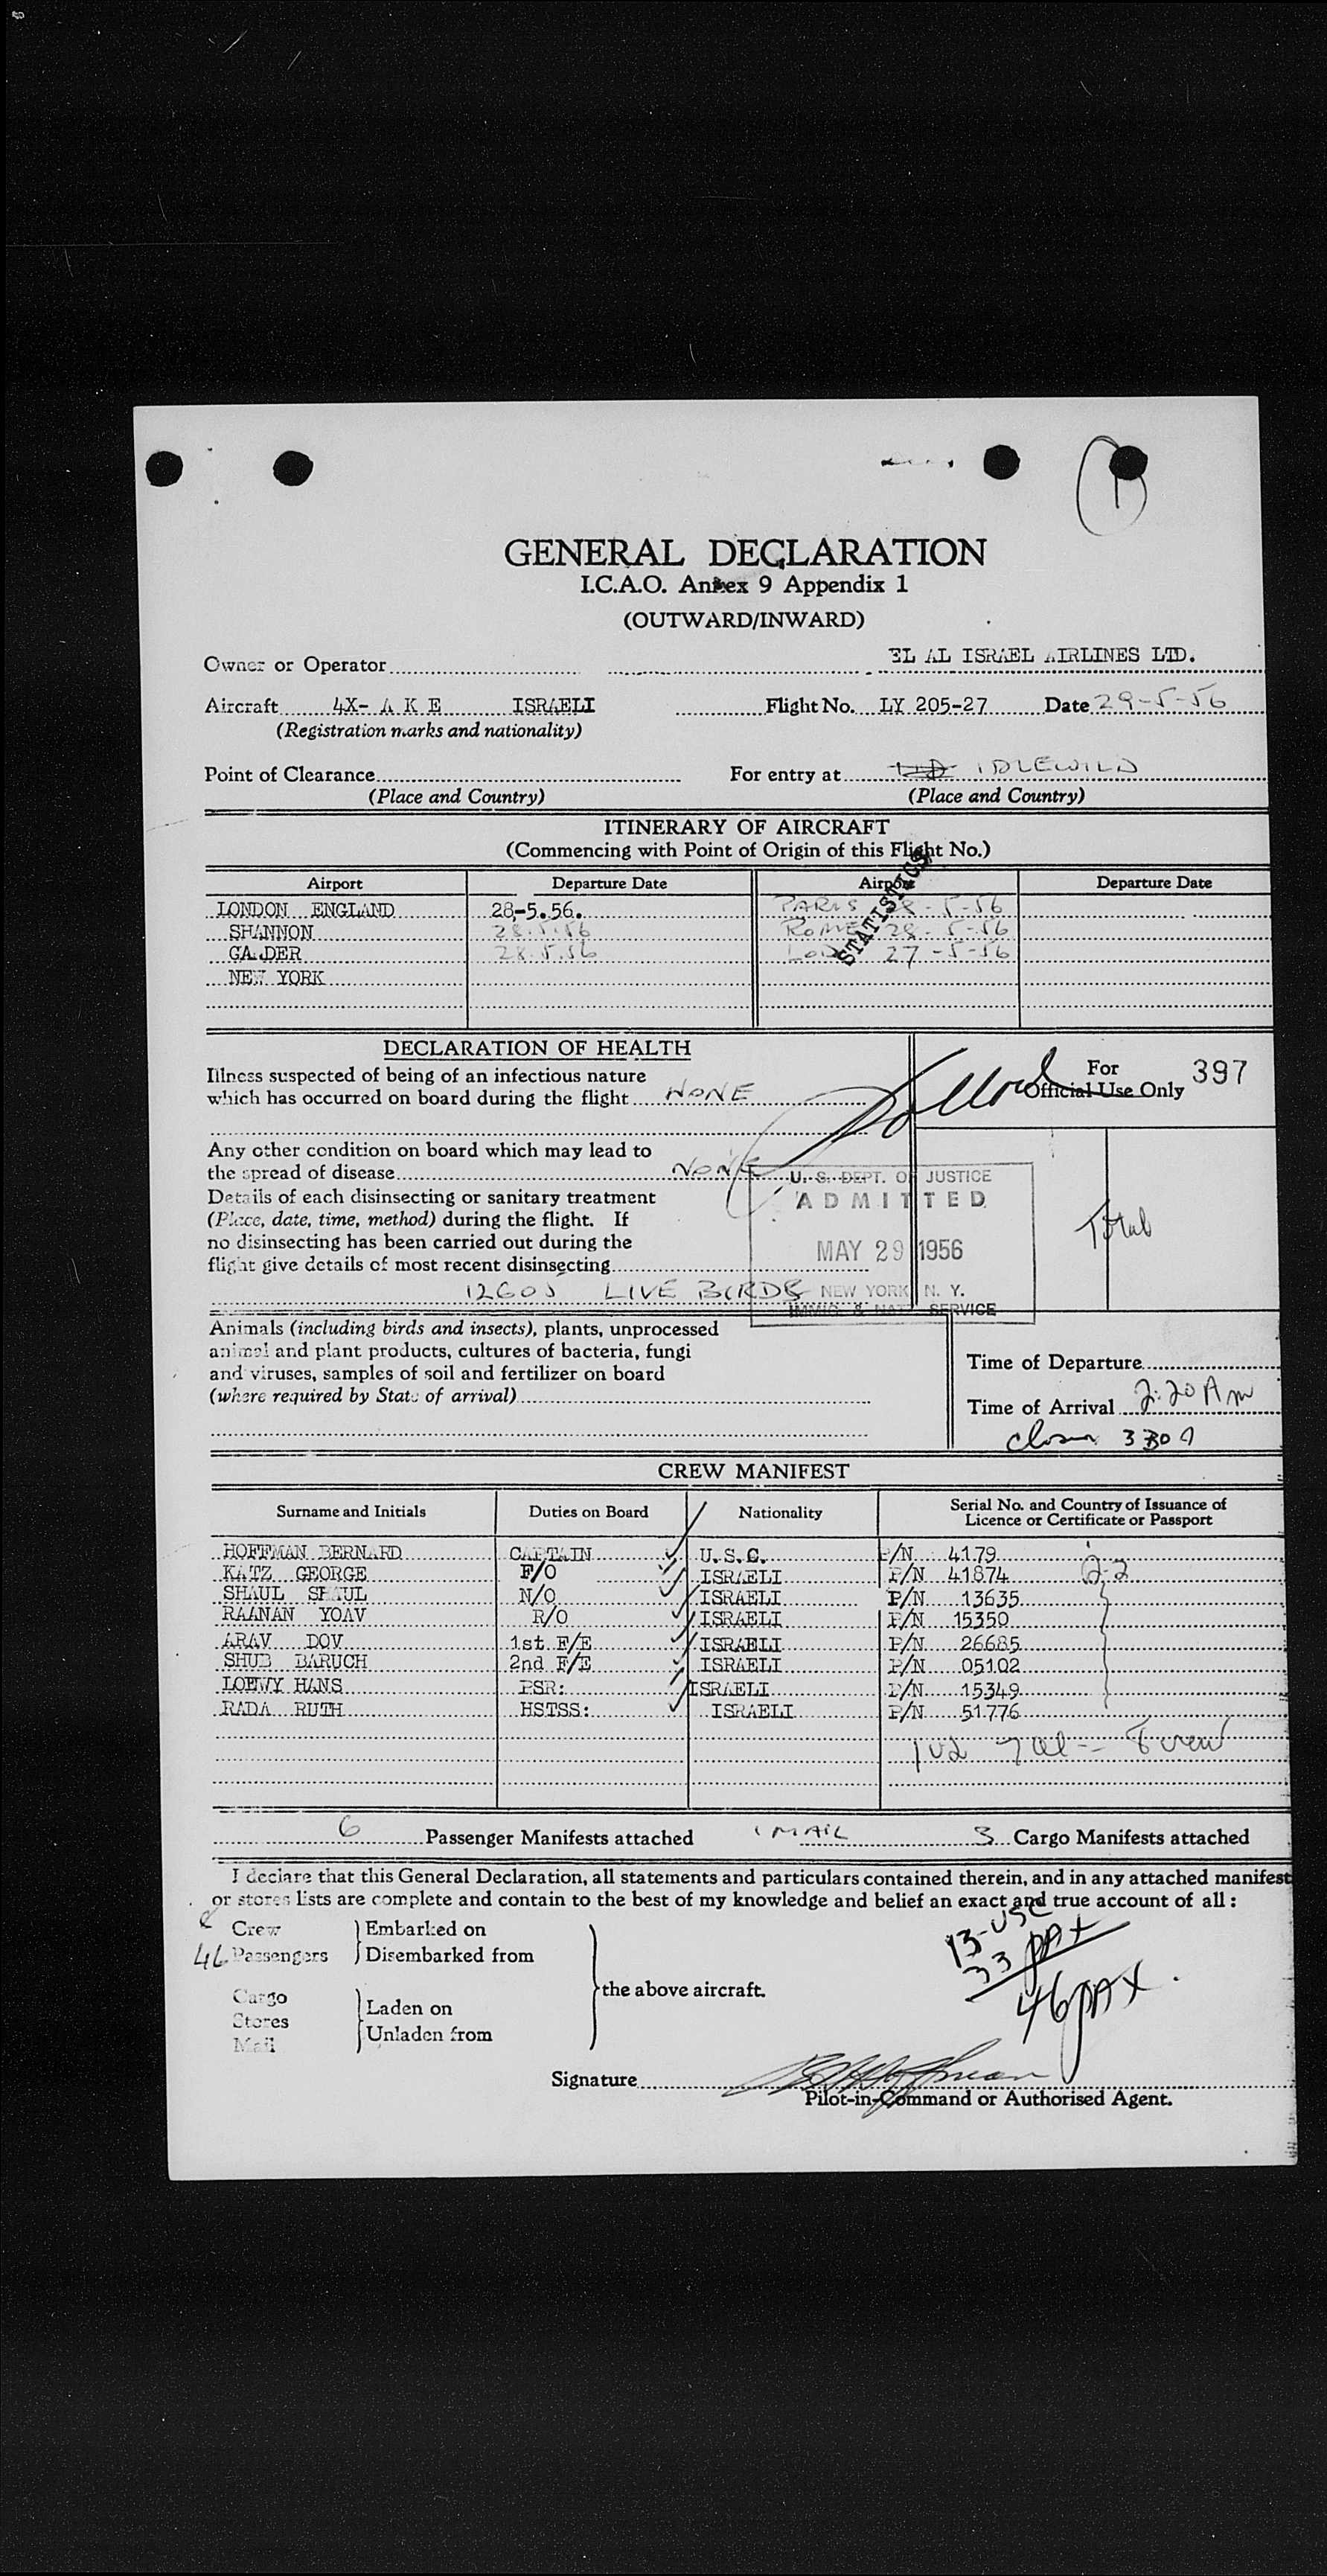 GENERAL DECLARATION
I.C.A.O. Annex 9 Appendix 1
(OUTWARD/INWARD)
Owner or Operator EL AL ISRAEL AIRLINES LTD.
Aircraft 4X- A K E ISRAELI Flight No. LY 205-27 Date 29-5-56
(Registration marks and nationality)
Point of Clearance For entry at IDLEWILD
(Place and Country) (Place and Country)
ITINERARY OF AIRCRAFT
(Commencing with Point of Origin of this Flight No.)
Airport Departure Date Airport Departure Date
STATISTICS
LONDON ENGLAND 28-5.56. PARIS 28-5-56
SHANNON 28.5.56 ROME 28-5-56
GANDER 28.5.56 LOD 27-5-56
NEW YORK
DECLARATION OF HEALTH
For
Official Use Only 397
Illness suspected of being of an infectious nature
which has occurred on board during the flight NONE
Any other condition on board which may lead to
the spread of disease NONE
Details of each disinsecting or sanitary treatment
(Place, date, time, method) during the flight. If
no disinsecting has been carried out during the
flight give details of most recent disinsecting
12605 LIVE BIRDS
U. S. DEPT. OF JUSTICE
ADMITTED
MAY 29 1956
NEW YORK, N. Y.
IMMIG. & NAT. SERVICE
Total
Animals (including birds and insects), plants, unprocessed
animal and plant products, cultures of bacteria, fungi
and viruses, samples of soil and fertilizer on board
(where required by State of arrival)
Time of Departure
Time of Arrival 2:20 Am
CREW MANIFEST
Surname and Initials Duties on Board Nationality Serial No. and Country of Issuance of
Licence or Certificate or Passport
HOFFMAN BERNARD CAPTAIN U.S.C. P/N 4179
KATZ GEORGE F/O ISRAELI P/N 41874
SHAUL SHAUL N/O ISRAELI P/N 13635
RAANAN YOAV R/O ISRAELI P/N 15350
ARAV DOV 1st F/E ISRAELI P/N 26685
SHUB BARUCH 2nd F/E ISRAELI P/N 05102
LOEWY HANS PSR: ISRAELI P/N 15349
RADA RUTH HSTSS: ISRAELI P/N 51776
6 Passenger Manifests attached 1 MAIL 3 Cargo Manifests attached
I declare that this General Declaration, all statements and particulars contained therein, and in any attached manifest
or stores lists are complete and contain to the best of my knowledge and belief an exact and true account of all :
Crew Embarked on
46 Passengers Disembarked from
the above aircraft.
Cargo
Stores Laden on
Mail Unladen from
13-USC
33 PAX
46 PAX
Signature
Pilot-in-Command or Authorised Agent.